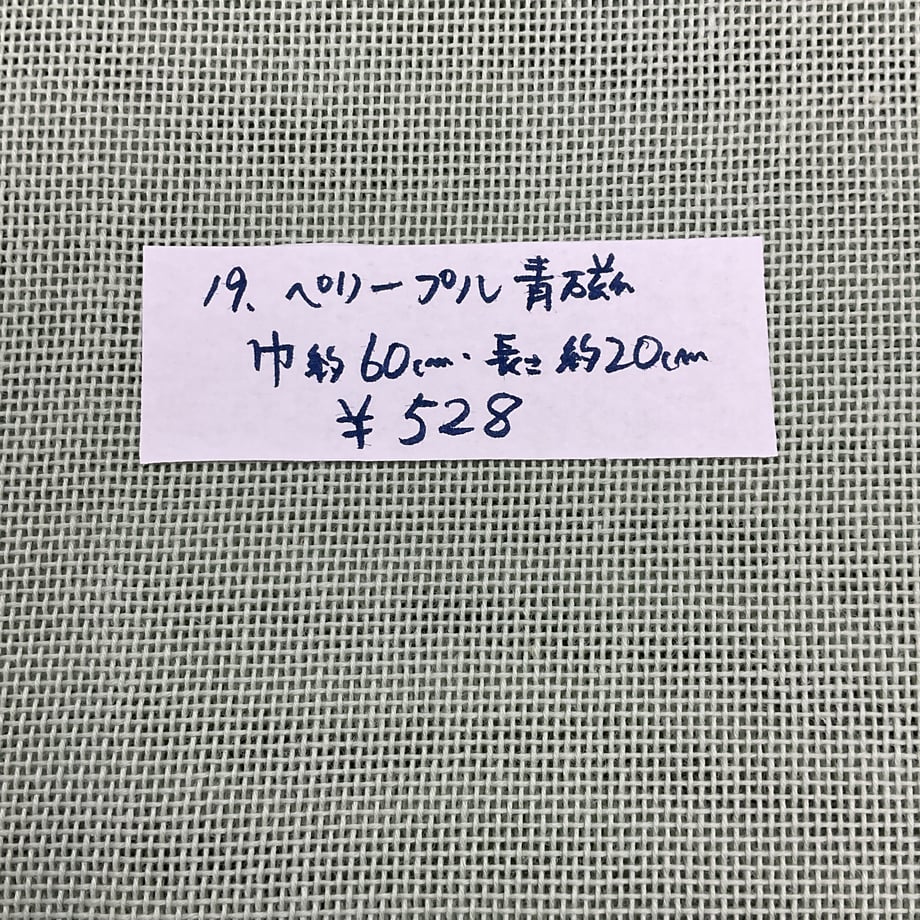 19、ペリープル青磁
巾約60cm・長さ約20cm
¥528